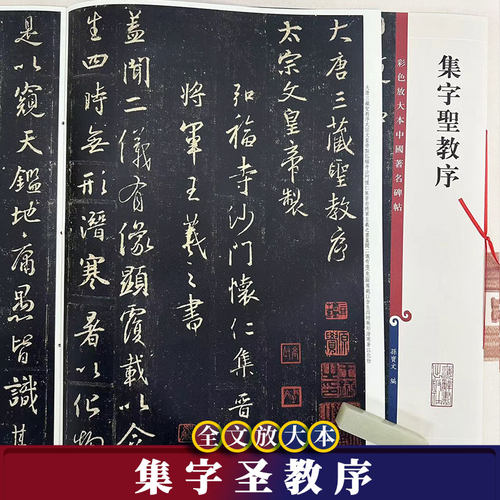 集字聖教序
彩色放大本中國著名碑帖
孫寶文 編
大唐三藏聖教序
太宗文皇帝製
弘福寺沙門懷仁集晉
將軍王羲之書
蓋聞二儀有像顯覆載以含
生四時無形潛寒暑以化物
是以窺天鑑地庸愚皆識其
全文放大本
集字圣教序